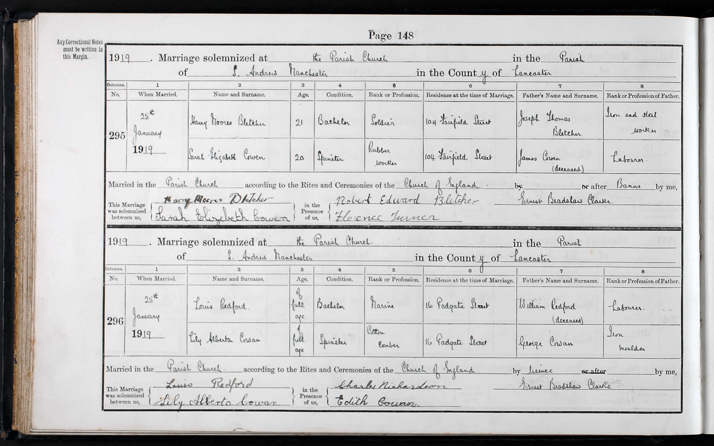 Page 148
Any Correctional Notes
must be written in
this Margin.
1919. Marriage solemnized at the Parish Church in the Parish
of S. Andrew Manchester in the County of Lancaster
Columns. 1 2 3 4 5 6 7 8
No. When Married. Name and Surname. Age. Condition. Rank or Profession. Residence at the time of Marriage. Father's Name and Surname. Rank or Profession of Father.
295 25th January 1919 Harry Moores Bletcher 21 Bachelor Soldier 104 Fairfield Street Joseph Thomas Bletcher Iron and steel worker
Sarah Elizabeth Cowen 20 Spinster Rubber worker 104 Fairfield Street James Cowen (deceased) Labourer
Married in the Parish Church according to the Rites and Ceremonies of the Church of England by or after Banns by me,
This Marriage was solemnized between us, Harry Moores Bletcher in the Presence of us, Robert Edward Bletcher Ernest Bradshaw Clarke
Sarah Elizabeth Cowen Florence Turner
1919. Marriage solemnized at the Parish Church in the Parish
of S. Andrew Manchester in the County of Lancaster
Columns. 1 2 3 4 5 6 7 8
No. When Married. Name and Surname. Age. Condition. Rank or Profession. Residence at the time of Marriage. Father's Name and Surname. Rank or Profession of Father.
296 25th January 1919 Louis Redford of full age Bachelor Marine 16 Padgate Street William Redford (deceased) Labourer
Lily Alberta Cowan of full age Spinster Cotton 16 Padgate Street George Cowan Iron moulder
Married in the Parish Church according to the Rites and Ceremonies of the Church of England by licence or after by me,
This Marriage was solemnized between us, Louis Redford in the Presence of us, Charles Richardson Ernest Bradshaw Clarke
Lily Alberta Cowan Edith Cowan